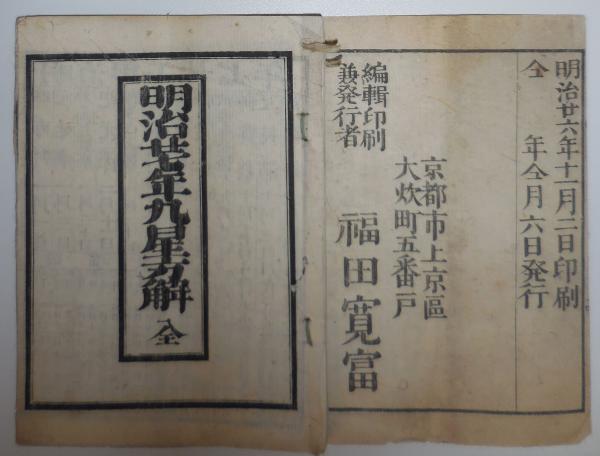 明治廿六年十一月二日印刷
仝 年仝月六日発行
京都市上京區
大炊町五番戸
編輯印刷
兼発行者
福田寛富
明治廿七年九星方解
全